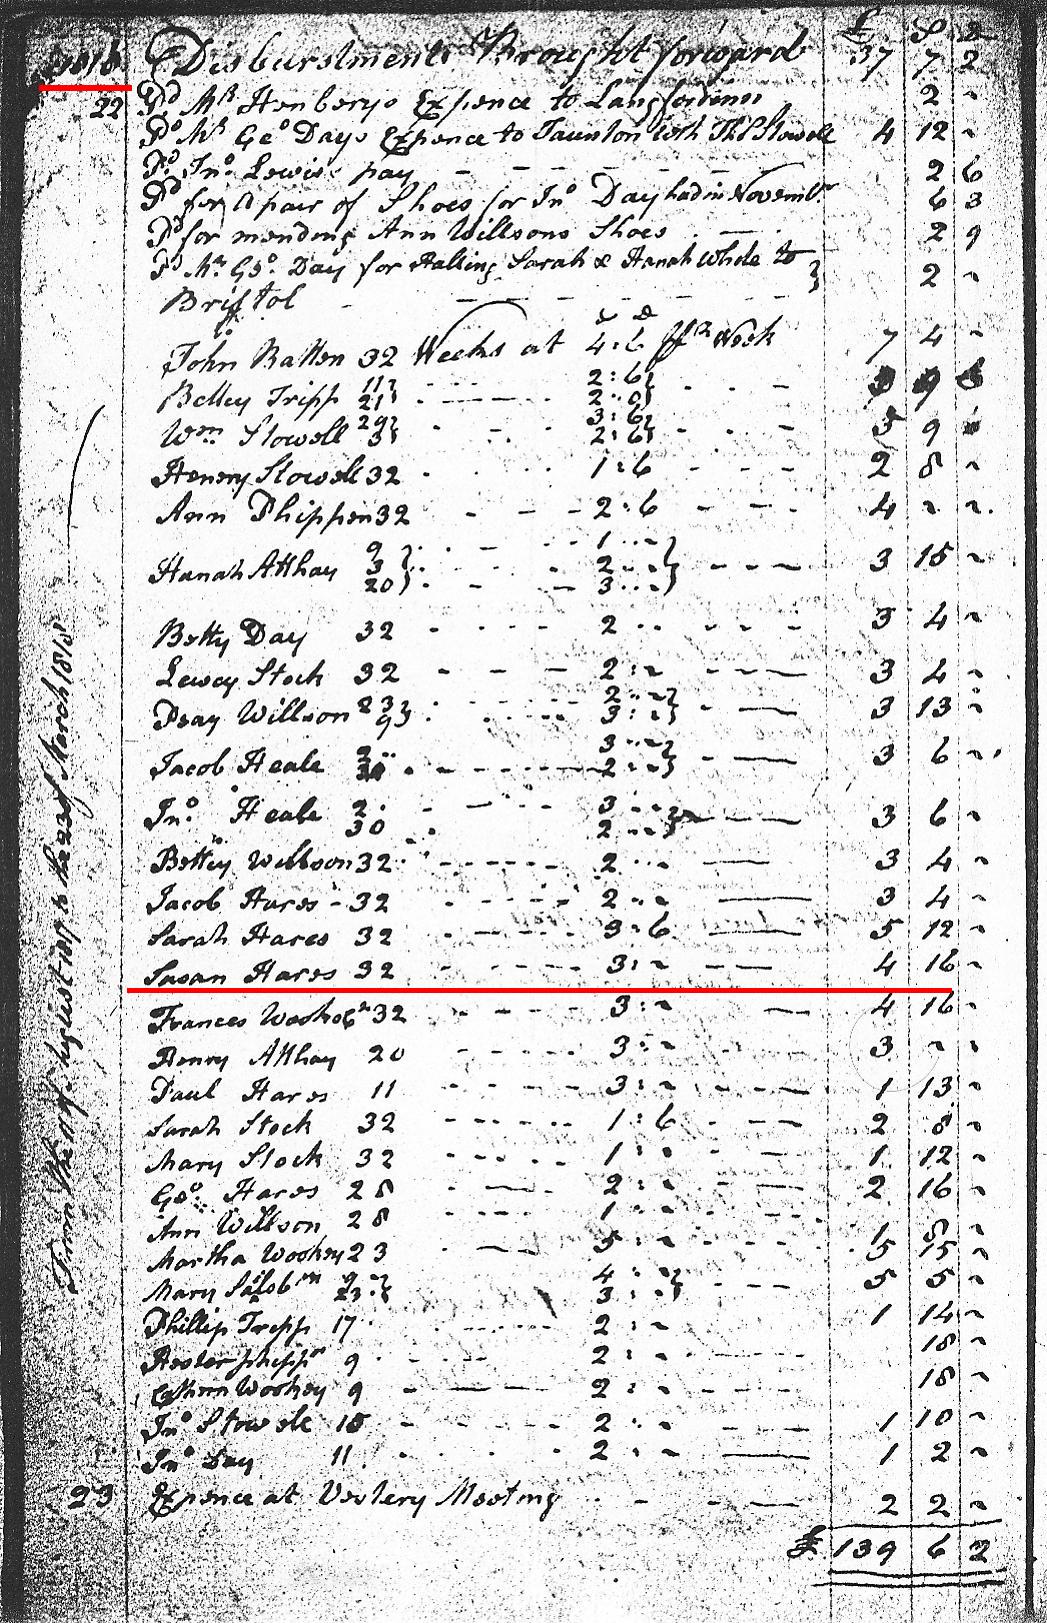 £ S D
1818 Disburstments Brought forward 37 7 2
22 Pd Mr Henberys Expence to Langford 2 ~
Pd Mr Geo Days Expence to Taunton with Thos Stowell 4 12 ~
Pd Jno Lewis pay 2 6
Pd for A pair of Shoes for Jno Day had in Novembr 6 3
Pd for mending Ann Willsons Shoes 2 9
Pd Mr Geo Day for Halling Sarah & Hanah While to
Bristol 2 ~
s d
John Batten 32 Weeks at 4:6 Pr Week 7 4 ~
Betty Tripp 11 2:6
21 2:0 3 9 6
Wm Stowell 29 3:6
3 2:6 5 9
Henery Stowell 32 1:6 2 8 ~
Ann Phippen 32 2:6 4 ~ ~
Hanah Atthay 9 1
3 2 3 15 ~
20 3
Betty Day 32 2 3 4 ~
Lewey Stock 32 2:~ 3 4 ~
Willson 23 2
9 3:~ 3 13 ~
Jacob Heale 2 3
30 2:~ 3 6 ~
Jno Heale 2 3
30 2 3 6 ~
Bettey Willson 32 2 3 4 ~
Jacob Hares 32 2 3 4 ~
Sarah Hares 32 3:6 5 12 ~
Susan Hares 32 3:~ 4 16 ~
Frances 32 3:~ 4 16 ~
Henry Atthay 20 3:~ 3 ~ ~
Paul Hares 11 3:~ 1 13 ~
Sarah Stock 32 1:6 2 8 ~
Mary Stock 32 1:~ 1 12 ~
Geo Hares 28 2:~ 2 16 ~
Ann Willson 28 1:~ 1 8 ~
Martha Wookey 23 5:~ 5 15 ~
Mary 9 4:~
23 3:~ 5 5 ~
Phillip Tripp 17 2:~ 1 14 ~
Hester phippn 9 2:~ 18 ~
Cathern Wookey 9 2:~ 18 ~
Jno Stowell 15 2:~ 1 10 ~
Jno Day 11 2:~ 1 2 ~
23 Expence at Vestery Meeting 2 2 ~
£ 139 6 2
From the 11 of August 1817 to the 23 of March 1818